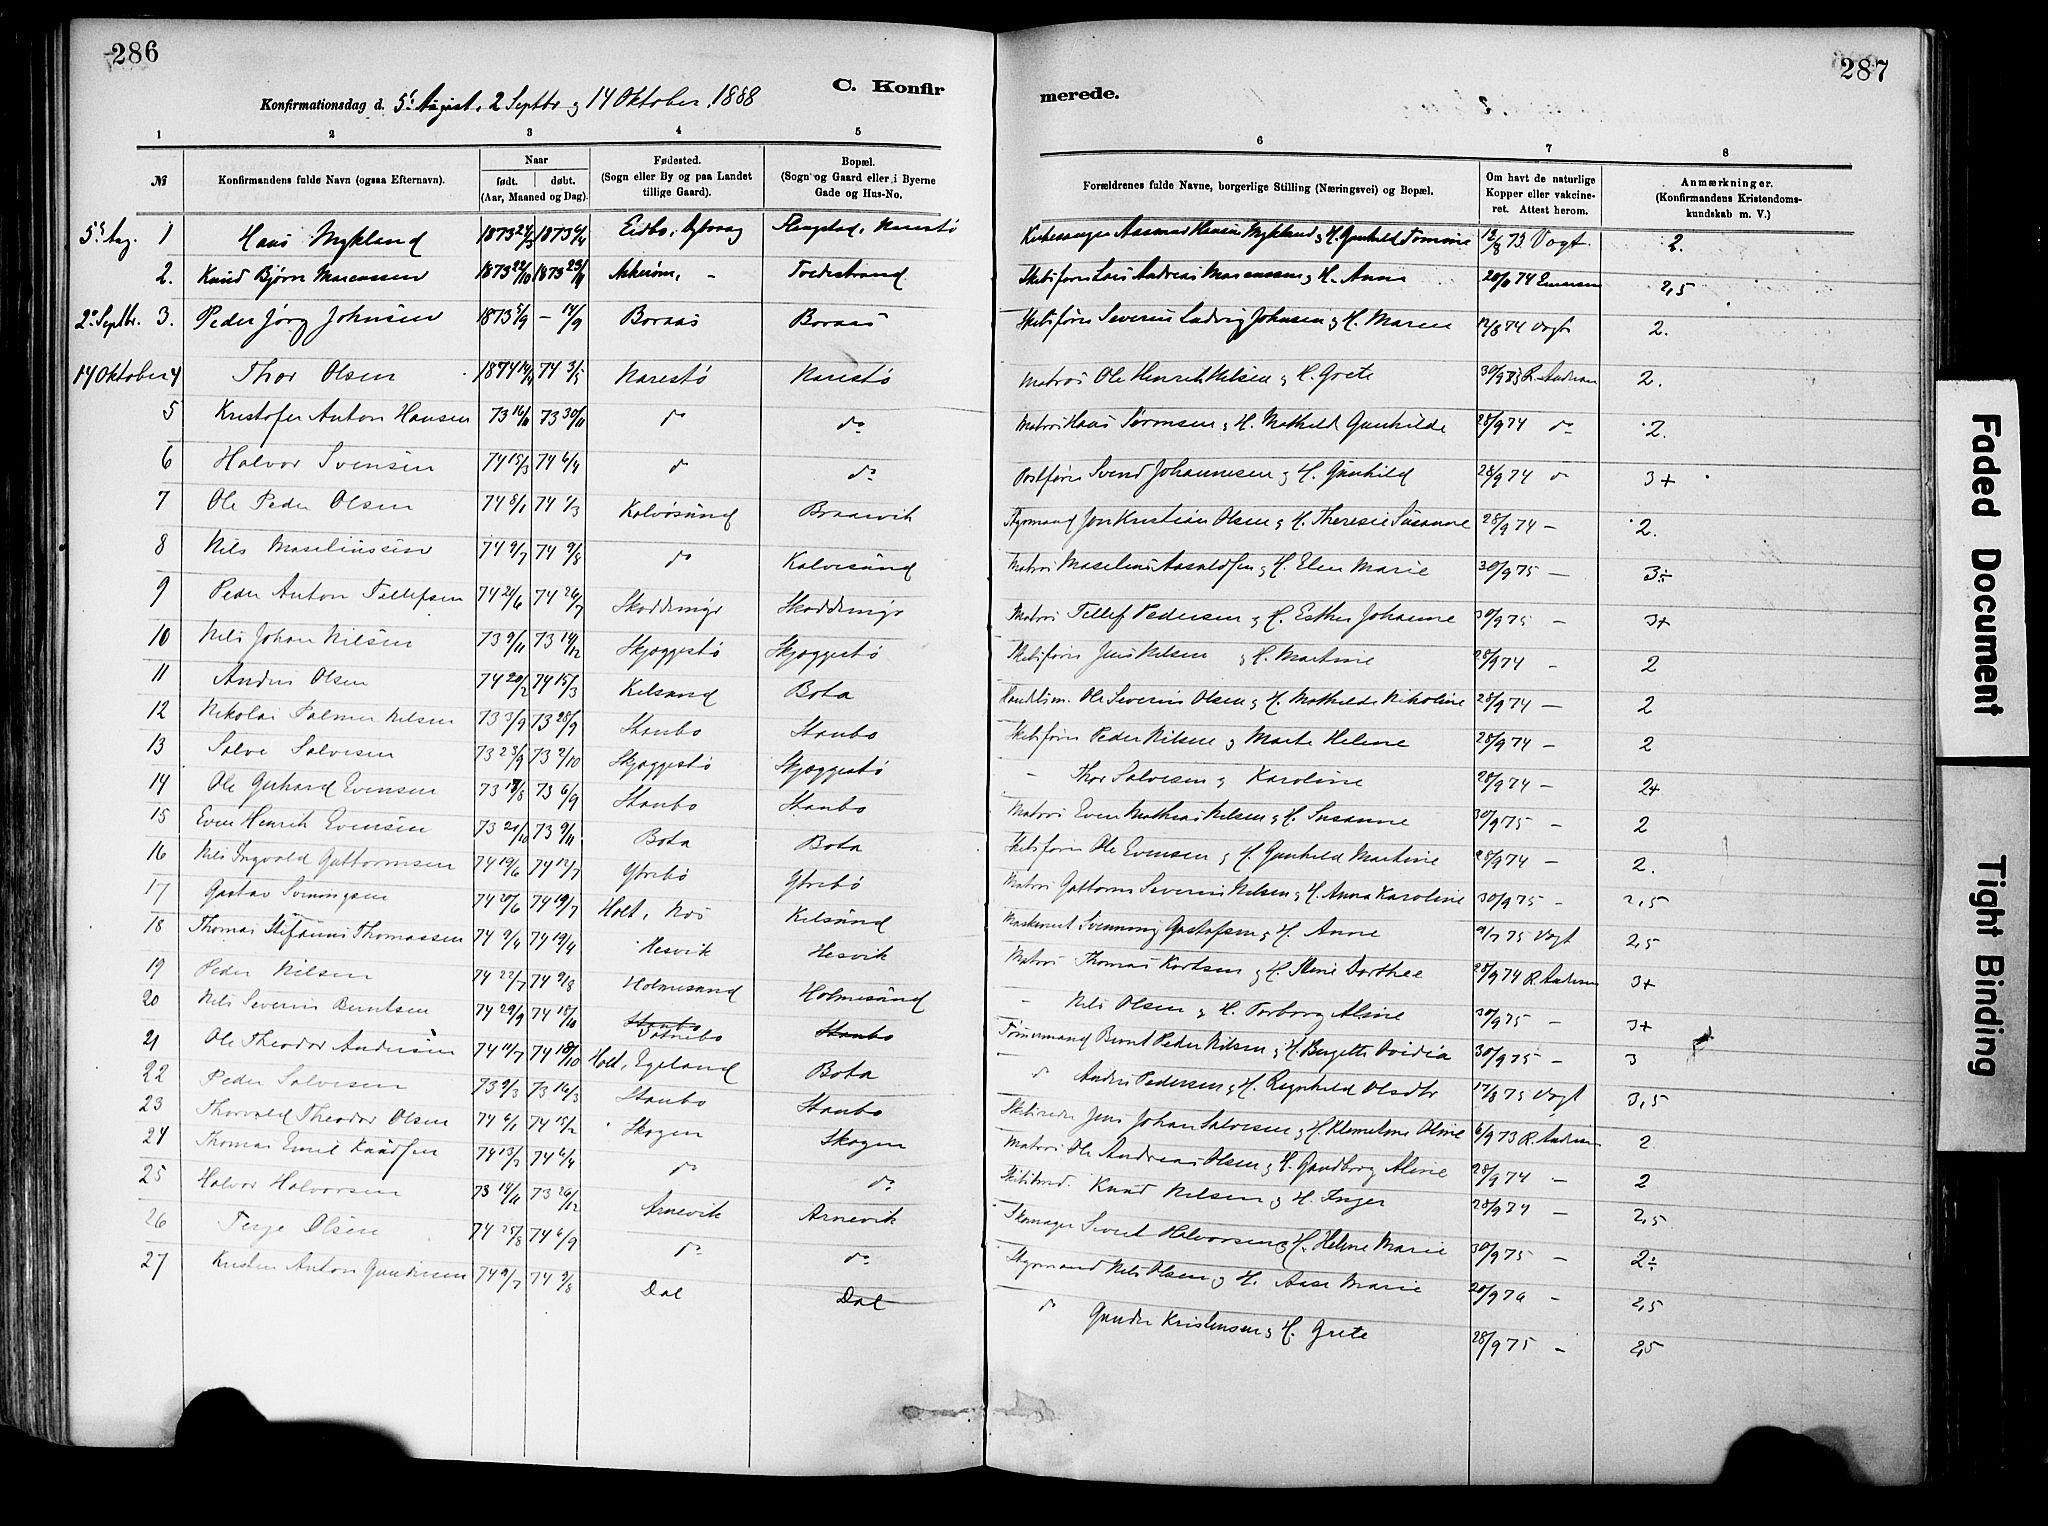 286
C. Konfir
Konfirmationsdag d. 5t August, 2 Septbr og 14 Oktober 1888
1 2 3 4 5
№ Konfirmandens fulde Navn (ogsaa Efternavn). Naar født. døbt. (Aar, Maaned og Dag). Fødested. (Sogn eller By og paa Landet tillige Gaard). Bopæl. (Sogn og Gaard eller i Byerne Gade og Hus-No.
5t Aug. 1 Hans Mykland 1873 1873 Eidbo, Narestø
2. Knud Bjørn Marcussen 1873 22/10 1873 23/11 Askerøen, - Tvedestrand
2n Septbr. 3. Peder Jørg Johnsen 1873 5/9 - 14/9 Boraas Boraas
14 Oktober 4 Thor Olsen 1874 74 3/5 Narestø Narestø
5 Kristofer Anton Hansen 73 73 30/11 do do
6 Halvor Svensen 74 15/3 74 6/4 do do
7 Ole Peder Olsen 74 8/1 74 1/3 Kalvøsund Braarvik
8 Nils Maselinussen 74 9/7 74 9/8 do Kalvesund
9 Peder Anton Tellefsen 74 21/6 74 26/7 Skoddmyr Skoddmyr
10 Nils Johan Nilsen 73 9/11 73 14/12 Skjæggestø Skjæggestø
11 Anders Olsen 74 20/2 74 15/3 Kilsund Bota
12 Nikolai Palmer Nilsen 73 3/9 73 28/9 Staubo Staubo
13 Salve Salvesen 73 23/9 73 2/10 Skjæggestø Skjæggestø
14 Ole Gerhard Evensen 73 73 6/9 Staubo Staubo
15 Even Henrik Evensen 73 21/10 73 9/11 Bota Bota
16 Nils Ingvald Guttormsen 74 19/6 74 12/7 Ytrebø Ytrebø
17 Gustav Svenningsen 74 20/6 74 19/7 Holt, Næs Kilsund
18 Thomas Stefanus Thomassen 74 9/4 74 19/4 Hesvik Hesvik
19 Peder Nilsen 74 22/7 74 9/8 Holmesund Holmesund
20 Nils Severin Berntsen 74 29/9 74 18/10 Staubo Staubo
21 Ole Theodor Andersen 74 11/7 74 18/10 Holt, Egeland Bota
22 Peder Salvesen 73 9/3 73 16/3 Staubo Staubo
23 Thorvald Theodor Olsen 74 6/1 74 15/2 Skogen Skogen
24 Thomas Emil Knudsen 74 13/3 74 6/4 do do
25 Halvor Halvorsen 73 14/11 73 26/12 Arnevik Arnevik
26 Terje Olsen 74 25/8 74 6/9 do do
27 Kristen Anton Gundersen 74 9/7 74 9/8 Dal Dal
287
merede.
6 7 8
Forældrenes fulde Navne, borgerlige Stilling (Næringsvei) og Bopæl. Om havt de naturlige Kopper eller vakcineret. Attest herom. Anmærkninger. (Konfirmandens Kristendomskundskab m. V.)
Kirkesanger Aasmund Hansen Mykland og H. Gunhild Tomine 12/8 73 Vogt. 2.
Skibsfører Lars Andreas Marcussen og H. Anna 20/6 74 Evensen 2,5
Skibsfører Severin Ludvig Johnsen og H. Maren 12/8 74 Vogt 2.
Matros Ole Henrik Nilsen og H. Grete 30/9 75 R. Andersen 2.
Matros Hans Sørensen og H. Mathild Gunhilde 28/9 74 do 2.
Postfører Svend Johannesen og H. Gunhild 28/9 74 do 3+
Styrmand Jon Kristian Olsen og H. Theresie Susanne 28/9 74 - 2.
Matros Maselius Aasvaldsen og H. Elen Marie 30/9 75 - 3÷
Matros Tellef Pedersen og H. Esther Johanne 30/9 75 - 3+
Skibsfører Jens Nilsen og H. Martine 28/9 74 - 2
Handelsm. Ole Severin Olsen og H. Mathilde Nikoline 28/9 74 - 2
Skibsfører Peder Nilsen og Marte Helene 28/9 74 - 2
- Thor Salvesen og Karoline 28/9 74 - 2+
Matros Even Mathias Nilsen og H. Susanne 30/9 75 - 2
Skibsfører Ole Evensen og H. Gunhild Martine 28/9 74 - 2.
Matros Guttorm Severin Nilsen og H. Anna Karoline 30/9 75 - 2,5
Maskinist Svenning Gustafsen og H. Anne 9/7 75 Vogt 2,5
Matros Thomas Kortsen og H. Stine Dorthee 28/9 74 R. Andersen 3+
- Nils Olsen og H. Torborg Aline 30/9 75 - 3+
Tømmermand Bernt Peder Nilsen og H. Birgitte Ovidia 30/9 75 - 3
do Anders Pedersen og H. Ragnhild Olsdtr 17/8 75 Vogt 3,5
Skibsreder Jens Johan Salvesen og H. Klemetine Oline 6/9 73 R. Andersen 2
Matros Ole Andreas Olsen og H. Gundborg Aline 28/9 74 - 2
Knud Nilsen og H. Inger 28/9 74 - 2,5
Skomager Sivert Halvorsen og H. Helene Marie 30/9 75 - 2÷
Styrmand Nils Olsen og H. Aase Marie - 2,5
do Gunder Kristensen og H. Grete 28/9 75 - 2,5
Faded Document
Tight Binding